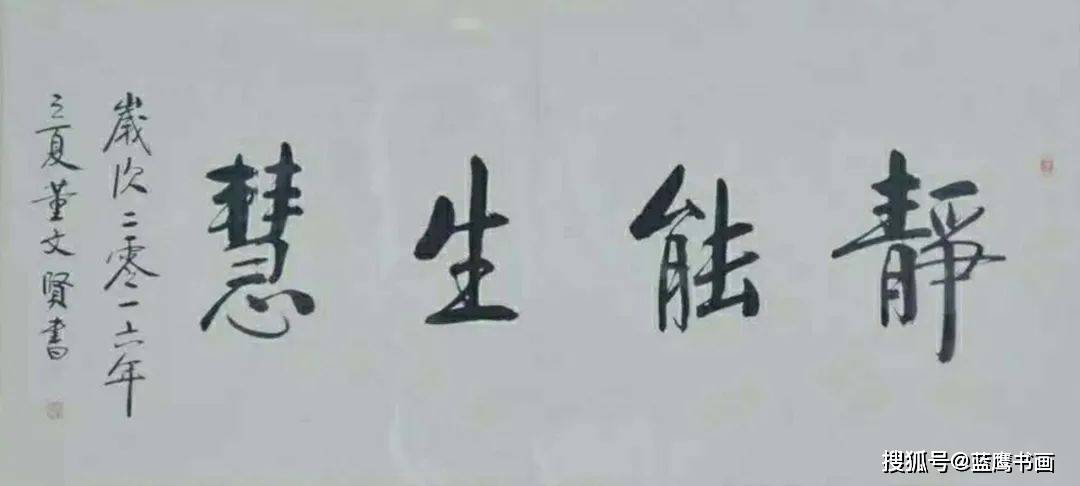 靜能生慧
歲次二零一六年
之夏董文賢書
搜狐号@蓝鹰书画